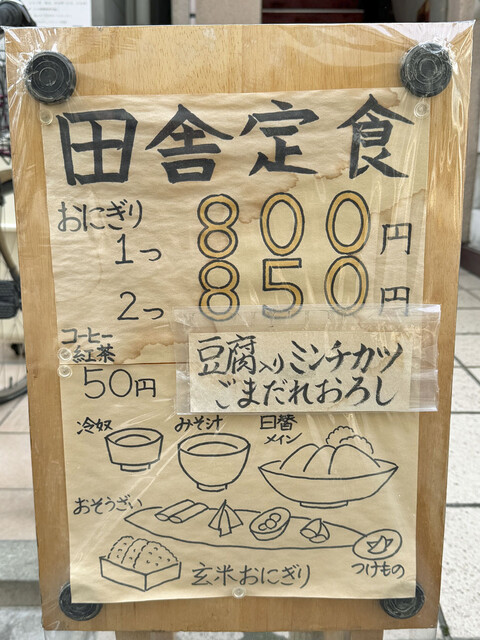 田舎定食
おにぎり
1つ 800円
2つ 850円
コーヒー
紅茶
50円
豆腐入りミンチカツ
ごまだれおろし
冷奴
みそ汁
日替
メイン
おそうざい
つけもの
玄米おにぎり